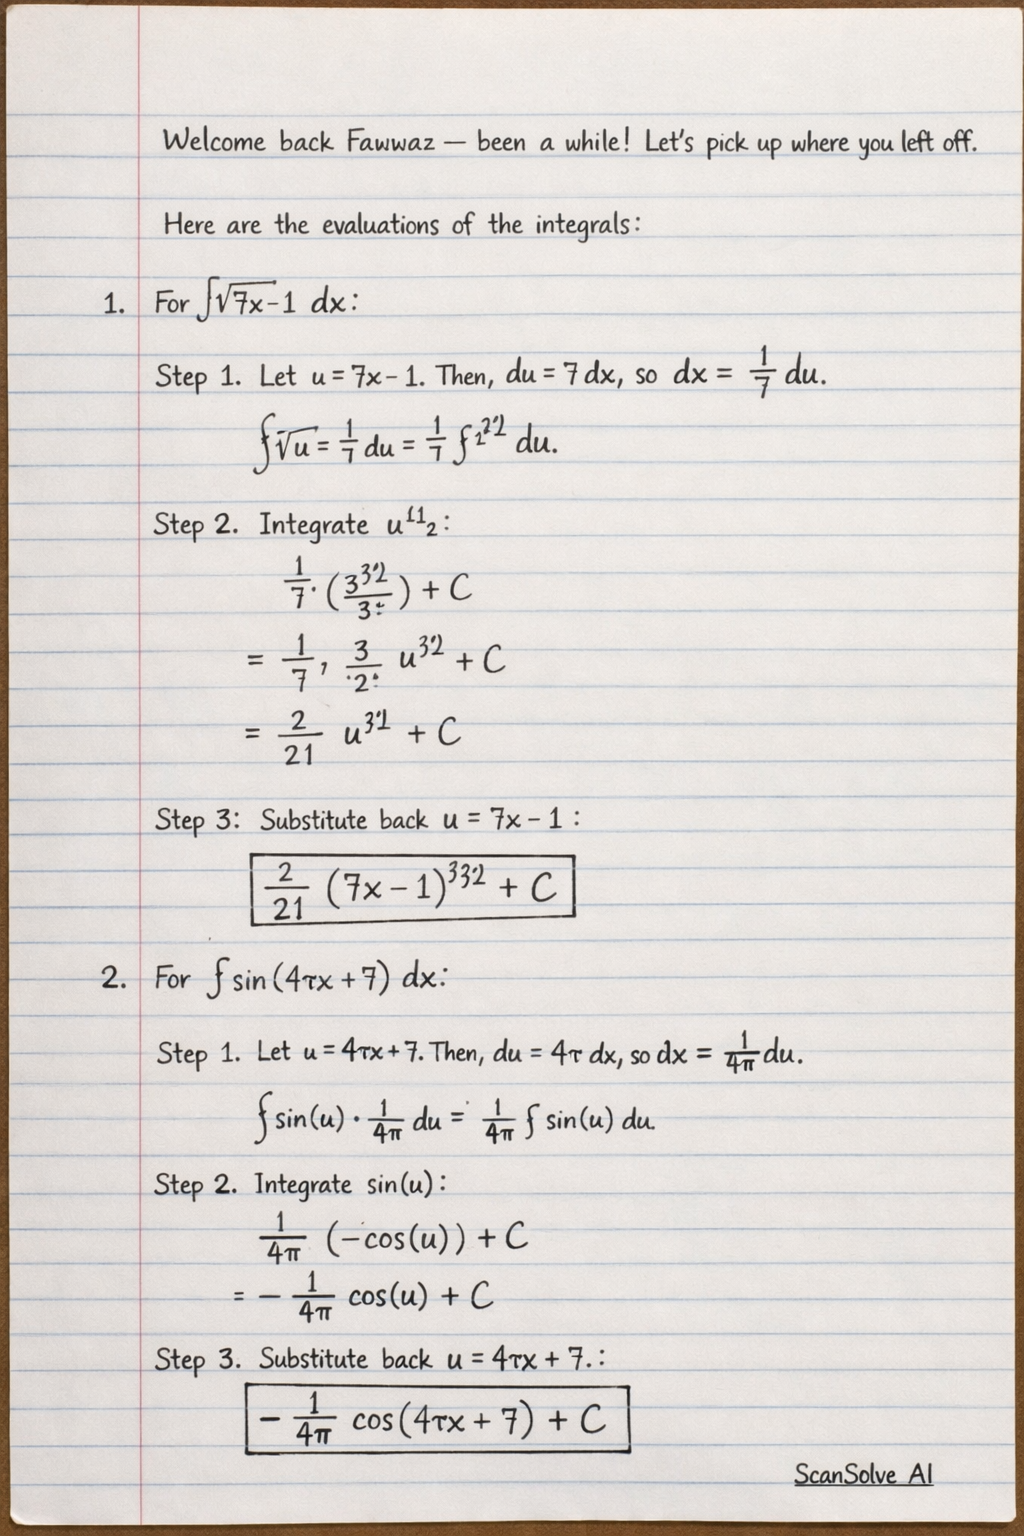 Welcome back Fawwaz — been a while! Let's pick up where you left off.
Here are the evaluations of the integrals:
1. For ∫√7x-1 dx:
Step 1. Let u = 7x - 1. Then, du = 7 dx, so dx = 1/7 du.
∫√u = 1/7 du = 1/7 ∫ 1^2'2 du.
Step 2. Integrate u^11 2:
1/7 · (3^3'2 / 3÷) + C
= 1/7 , 3/·2: u^3'2 + C
= 2/21 u^3'2 + C
Step 3: Substitute back u = 7x - 1 :
2/21 (7x - 1)^332 + C
2. For ∫ sin(4πx + 7) dx:
Step 1. Let u = 4πx + 7. Then, du = 4π dx, so dx = 1/4π du.
∫ sin(u) · 1/4π du = 1/4π ∫ sin(u) du.
Step 2. Integrate sin(u):
1/4π (-cos(u)) + C
= - 1/4π cos(u) + C
Step 3. Substitute back u = 4πx + 7.:
- 1/4π cos(4πx + 7) + C
ScanSolve AI